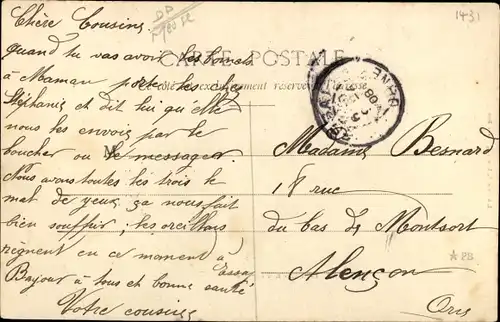 Chère Cousine
quand tu vas avoir les bonnets
à Maman porte les chez
Stéphanie et dit lui qu'elle
nous les envoie par le
boucher ou le messager.
Nous avons toutes les trois le
mal de yeux, ça nous fait
bien souffrir, les oreillons
règnent en ce moment à Essay
Bonjour à tous et bonne santé
Votre cousine
CARTE POSTALE
exclusivement réservé
Madame Besnard
18 rue
du bas de Montsort
Alençon
Orne
1431